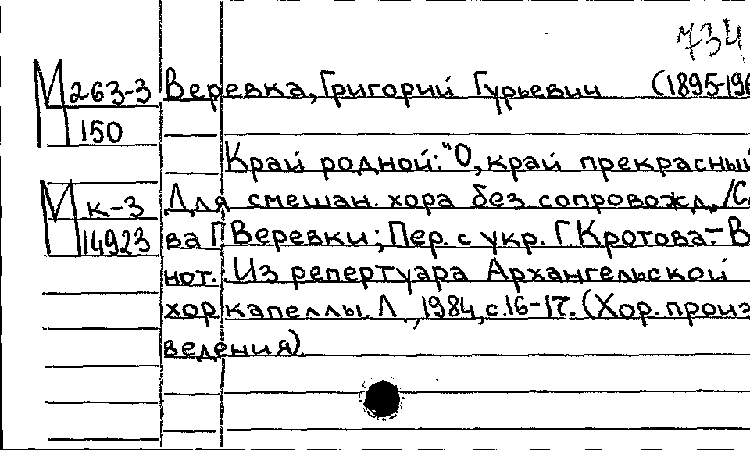 734
М 263-3 Веревка, Григорий Гурьевич (1895-196
150
Край родной: "О, край прекрасный
М к-3 Для смешан. хора без сопровожд. /Сл
14923 ва Г. Веревки; Пер. с укр. Г. Кротова.- В
нот. Из репертуара Архангельской
хор капеллы. Л., 1984, с. 16-17. (Хор. произ
ведения)